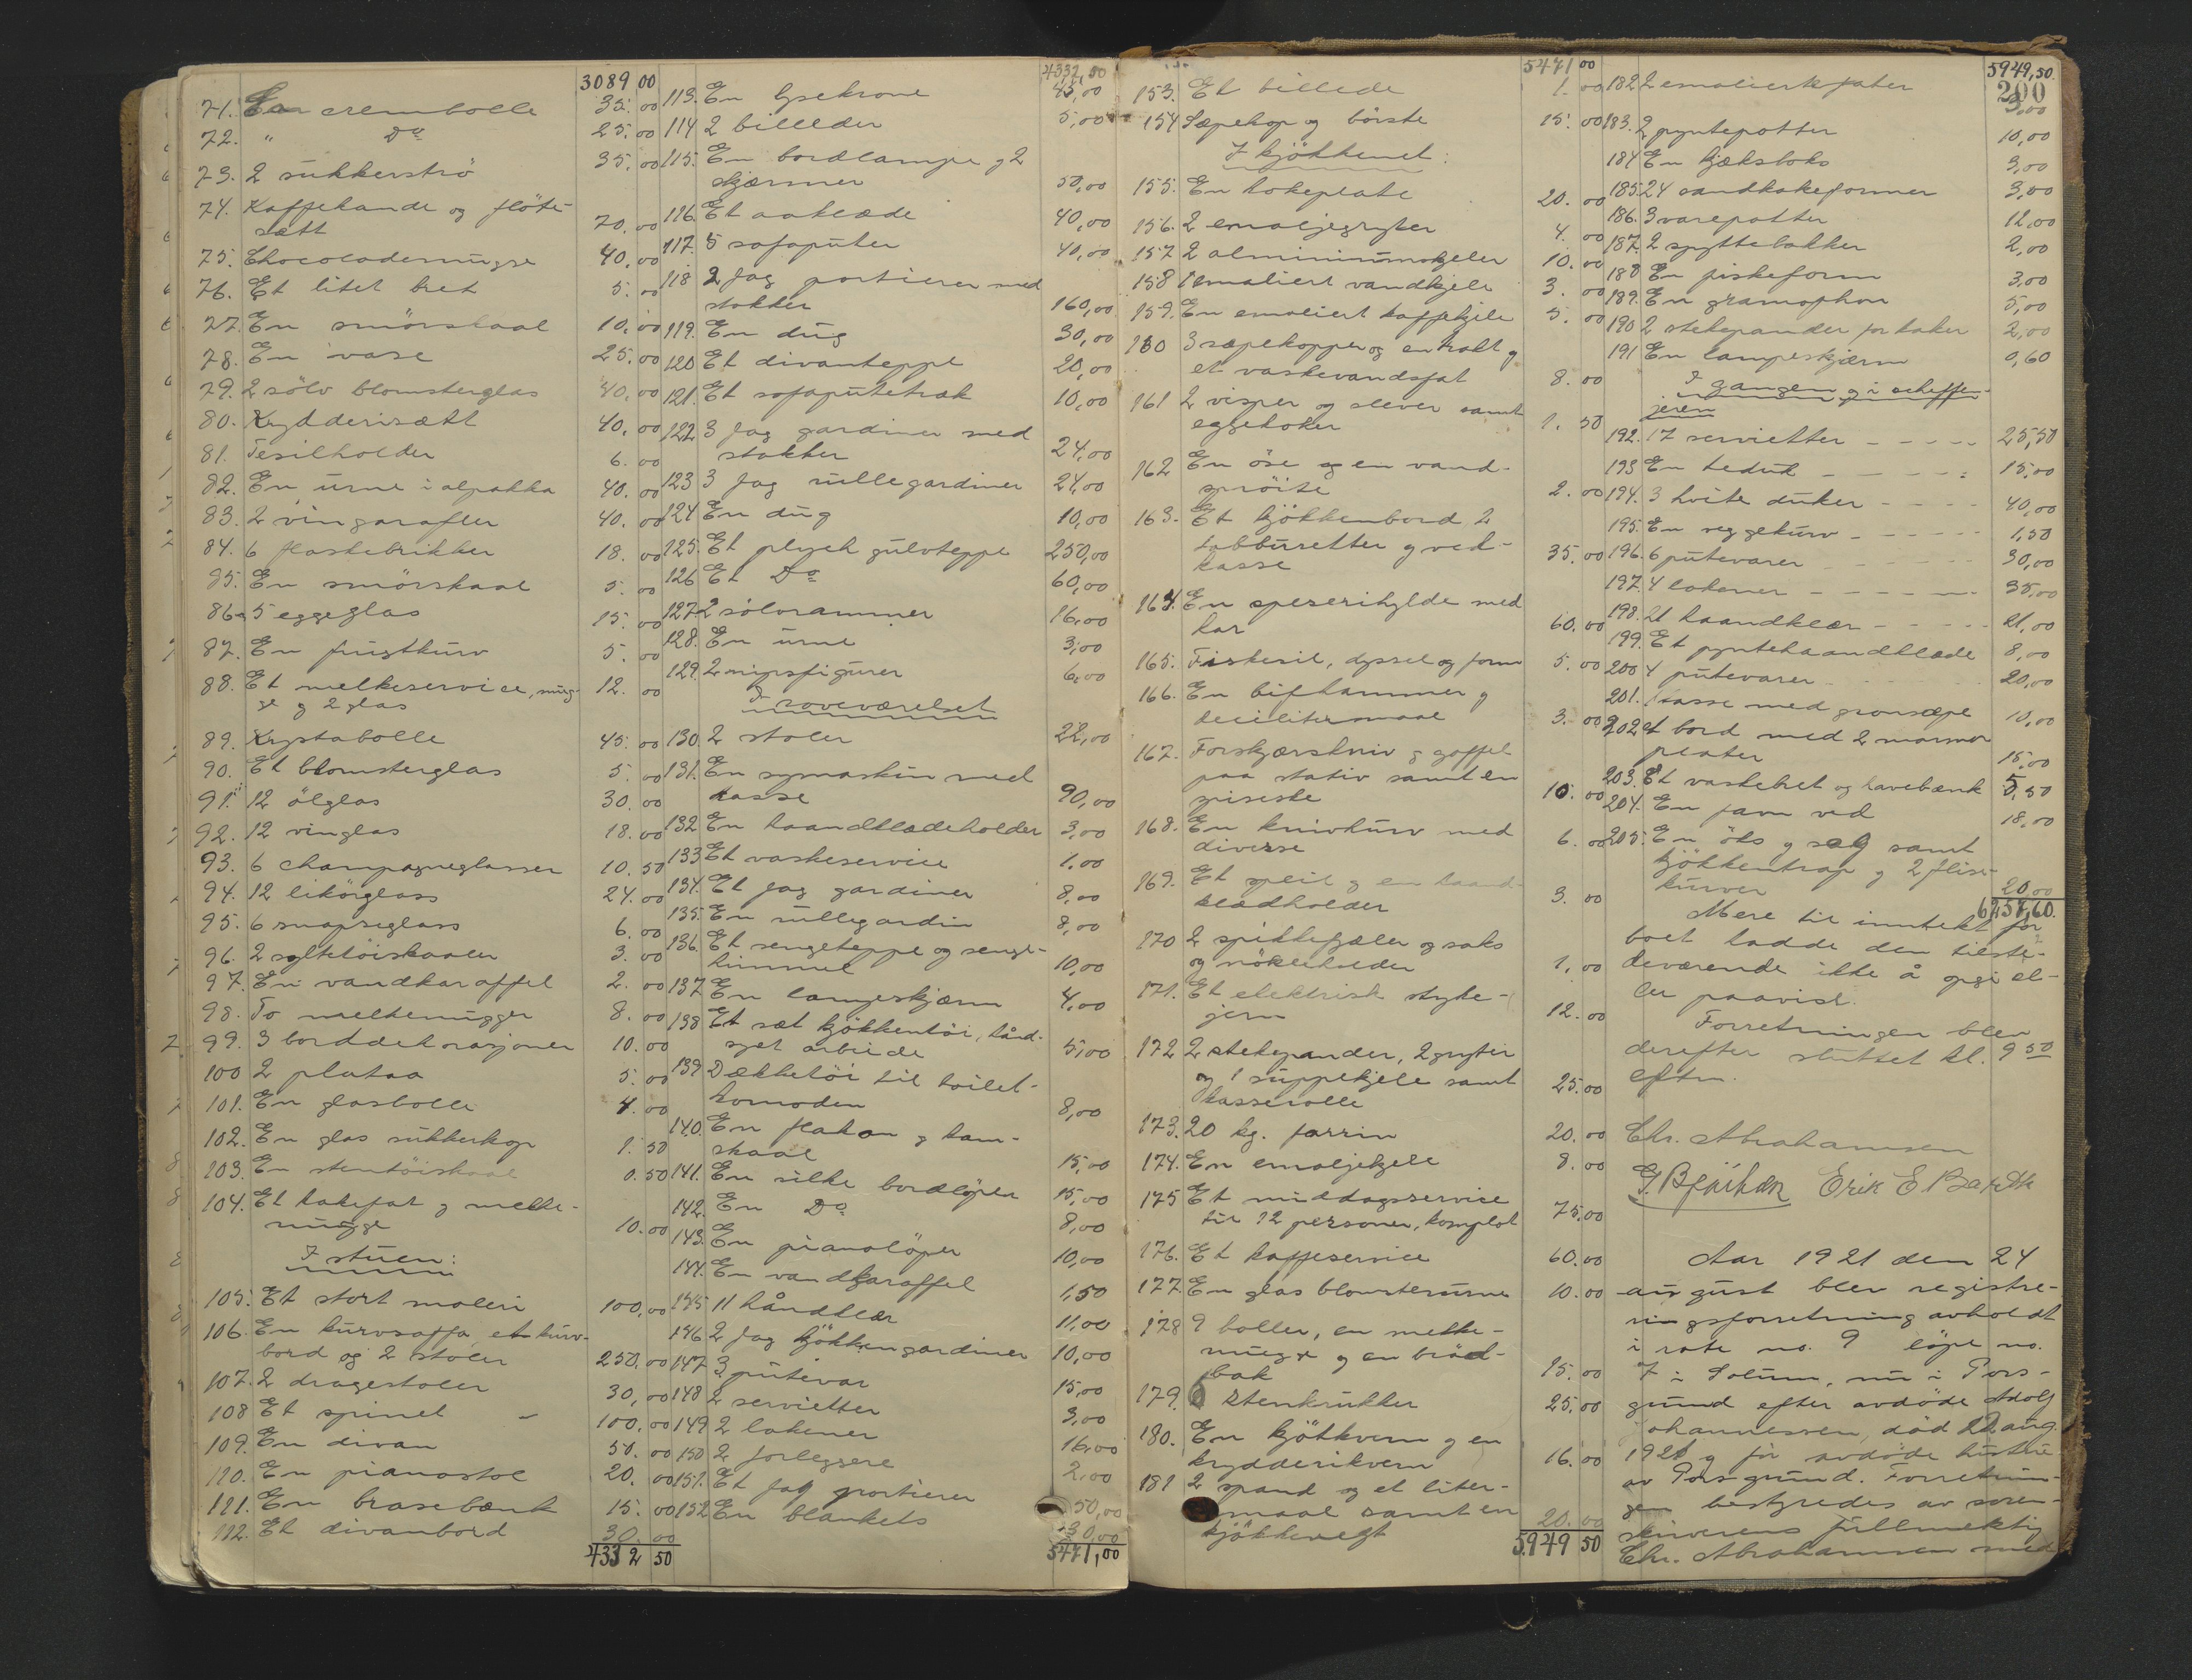 3089 00
71. En crembolle 35. 00
72. " Do 25. 00
73. 2 sukkerströ 35. 00
74. Kaffekande og flöte-
sætt 70. 00
75. Chocolademugge 40. 00
76. Et litet bret 5. 00
77. En smörskaal 10. 00
78. En vase 25. 00
79. 2 sölv blomsterglas 40. 00
80. Krydderisætt 40. 00
81. Tesilholder 6. 00
82. En urne i alpakka 40. 00
83. 2 vingarafler 40. 00
84. 6 flaskebrikker 18. 00
85. En smörskaal 5. 00
86. 5 eggeglas 15. 00
87. En frugtkurv 5. 00
88. Et melkeservice, mug-
ge g 2 glas 12. 00
89. Krystabolle 45. 00
90. Et blomsterglas 5. 00
91. 12 ölglas 30. 00
92. 12 vinglas 18. 00
93. 6 champagneglasser 10. 50
94. 12 likörglass 24. 00
95. 6 snapseglass 6. 00
96. 2 syltetöiskaaler 3. 00
97. En vandkaraffel 2. 00
98. To melkemugger 8. 00
99. 3 borddekorasjoner 10. 00
100 2 plataa 5. 00
101. En glasbolle 4. 00
102. En glas sukkerkop 1. 50
103. En stentöiskaal 0. 50
104. Et kakefat g melke-
mugge 10. 00
I stuen:
105. Et stort maleri 100,00
106. En kurvsaffa, et kurv-
bord og 2 stoler 250. 00
107. 2 dragestoler 30, 00
108 Et spinet 100, 00
109. En divan 50. 00
110. En pianostol 20. 00
111. En brasebænk 15. 00
112. Et divanbord 30. 00
4332 50
4332,50
113. En lysekrone 45,00
114 2 billeder 5,00
115. En bordlampe g 2
skjærmer 50,00
116. Et aaklæde 40,00
117. 5 sofaputer 40,00
118 2 fag portierer med
stokker 160,00
119. En dug 30,00
120 Et divanteppe 20,00
121. Et sofaputetræk 10,00
122 3 fag gardiner med
stokker 24,00
123 3 fag rullegardiner 24,00
124 En dug 10,00
125. Et plysch gulvteppe 250,00
126 Et Do 60,00
127. 2 sölvrammer 16,00
128. En urne 3,00
129. 2 nipsfigurer 6,00
I soveværelset
130. 2 stoler 22,00
131. En symaskin med
kasse 90,00
132 En haandklædeholder 3,00
133 Et vaskeservice 1.00
134. Et fag gardiner 8,00
135. En rullegardin 8,00
136. Et sengeteppe og senge-
himmel 10,00
137 En lampeskjærm 4,00
138 Et sæt kjökkentöi, hånd-
syet arbeide 5,00
139 Dækketöi til toilet-
komoden 8,00
140. En flakon g kam-
skaal 15,00
141. En silke bordlöper 15,00
142. En Do 8,00
143. En pianolöper 10,00
144. En vandkaraffel 1,50
145 11 håndklær 11,00
146 2 fag kjökkengardiner 10,00
147 3 putevar 15,00
148 2 servietter 3,00
149 2 lakener 16,00
150 2 forleggere 2,00
151. Et fag portierer 50,00
152 En blankets 30,00
5471,00
5471 00
153. Et billede 1. 00
154 Sæpekop og börste 15. 00
I kjökkenet:
155. En kokeplate 20. 00
156. 2 emaljegryter 4. 00
157 2 alminiumskjeler 10. 00
158 1 emaliert vandkjele 3. 00
159. En emaliert kaffekjele 5. 00
160 3 sæpekopper og en trakt g
et vaskevandsfat 8. 00
161 2 visper og slever samt
eggekoker 1. 50
162 En öse og en vand-
spröite 2. 00
163. Et kjökkenbord 2
tabburetter g ved-
kasse 35. 00
164. En speserihylde med
kar 60. 00
165. Fiskesil, dyssel og form 5. 00
166. En bifhammer g
decilitermaal 3. 00
167. Forskjærskniv g gaffel
paa stativ samt en
spiseske 10. 00
168. En knivkurv med
diverse 6. 00
169. Et speil g en haand-
klædholder 3. 00
170 2 spikkefjæler og saks
og nökleholder 1, 00
171. Et elektrisk stryke-
jern 12. 00
172 2 stekepander, 2 gryter
og 1 suppekjele samt
kasserolle 25. 00
173. 20 kg. farrin 20. 00
174. En emaljekjele 8. 00
175 Et middagsservice
til 12 personer, komplet 75,00
176. Et kaffeservice 60. 00
177. En glas blomsterurne 10. 00
178 9 boller, en melke-
mugge g en bröd-
bak 15. 00
179. 6 stenkrukker 25. 00
180. En kjötkvern g en
krydderikvern 16. 00
181 2 spand og et liter-
maal samt en
kjökkenvegt 20. 00
5949 50
5949,50.
200
182 2 emalierte fater 3,00
183. 2 pyntepotter 10,00
184 En kjæksboks 3,00
185 24 sandkakeformer 3,00
186. 3 varepotter 12,00
187. 2 spyttebakker 2,00
188 En fiskeform 3,00
189. En gramophon 5,00
190 2 stekepander for kaker 2,00
191 En lampeskjærm 0,60
I gangen g i cheffen-
jeren
192. 17 servietter 25,50
193 En teduk 15,00
194. 3 hvite duker 40,00
195. En reggekurv 1,50
196. 6 putevarer 30,00
197. 4 lakener 35,00
198. 21 haandklær 21,00
199. Et pyntehaandklæde 8,00
200 4 putevarer 20,00
201. 1 kasse med grönsæpe 10,00
202 et bord med 2 marmor
plater 15,00
203. Et vaskebret og lavebænk 5,50
204. En favn ved 18,00
205. En öks g sag samt
kjökkentrap g 2 flise-
kurver 20,00
6257,60.
Mere til inntekt for
boet hadde den tilste-
deværende ikke å opgi el-
ler paavise.
Forretningen blev
derefter sluttet kl. 9 50
eftm.
Chr. Abrahamsen
Erik E Barth
Aar 1921 den 24
august blev registre-
ringsforretning avholdt
i rote no. 9 löpe no.
7 i Solum, nu i Pors-
grund efter avdöde Adolf
Johannessen, död 22 aug.
1921 g för avdöde hustru
av Porsgrund. Forretnin-
gen bestyredes av soren-
skriverens fullmektig
Chr. Abrahamsen med